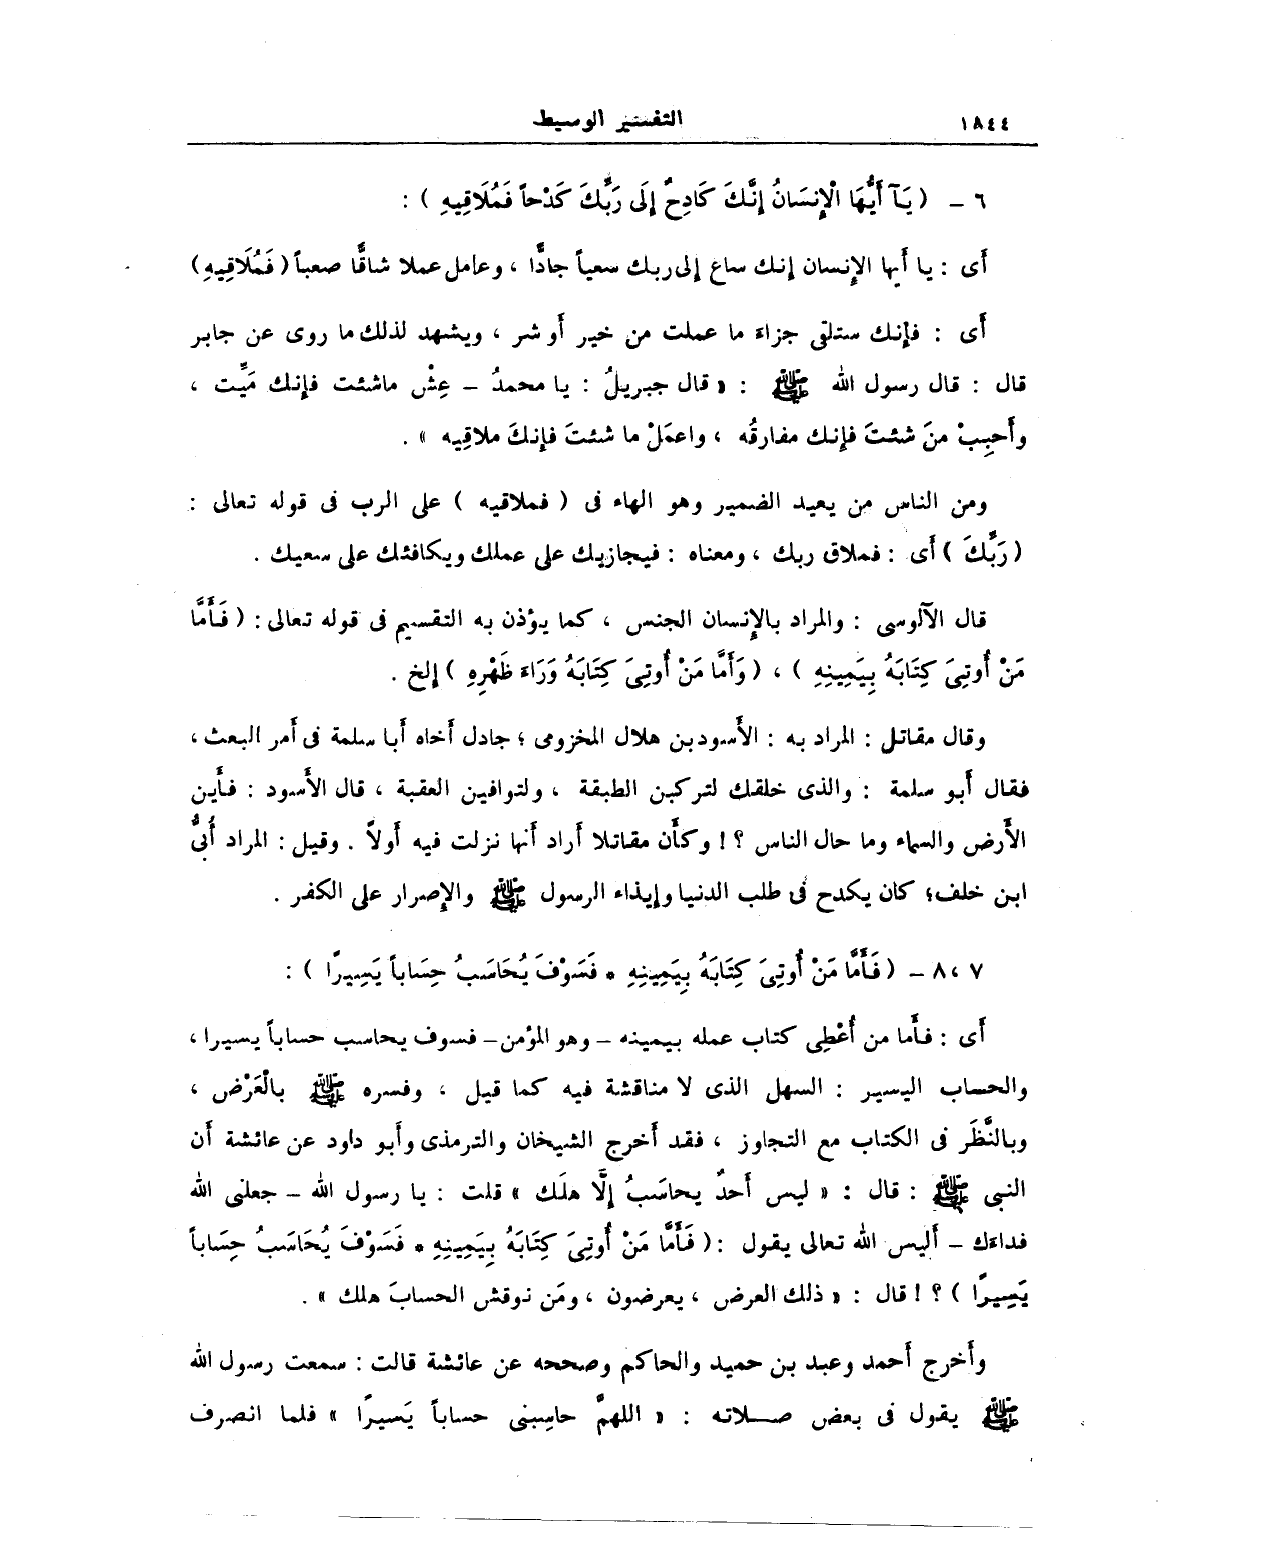 ١٨٤٤
التفسير الوسيط
٦ – ( يَـآ أَيُّهَا الْإِنسَانُ إِنَّكَ كَادِحٌ إِلَى رَبِّكَ كَدْحاً فَمُلَاقِيهِ ) :
أَى : يا أَيها الإِنسان إِنك ساع إِلى ربك سعياً جادًّا ، وعامل عملا شاقًّا صعباً ( فَمُلَاقِيهِ )
أَى : فإِنك ستلقى جزاءَ ما عملت من خير أَو شر ، ويشهد لذلك ما روى عن جابر
قال : قال رسول الله ﷺ : « قال جبريلُ : يا محمدُ – عِشْ ماشئت فإِنك مَيِّت ،
وأَحبِبْ منَ شئتَ فإِنك مفارقُه ، واعمَلْ ما شئتَ فإِنكَ ملاقِيه » .
ومن الناس من يعيد الضمير وهو الهاء فى ( فملاقيه ) على الرب فى قوله تعالى :
( رَبِّكَ ) أَى : فملاق ربك ، ومعناه : فيجازيك على عملك ويكافئك على سعيك .
قال الآلوسى : والمراد بالإِنسان الجنس ، كما يؤذن به التقسيم فى قوله تعالى : ( فَـأَمَّا
مَنْ أُوتِىَ كِتَابَهُ بِيَمِينِهِ ) ، ( وَأَمَّا مَنْ أُوتِىَ كِتَابَهُ وَرَاءَ ظَهْرِهِ ) إِلخ .
وقال مقاتل : المراد به : الأَسود بن هلال المخزومى ؛ جادل أَخاه أَبا سلمة فى أَمر البعث ،
فقال أَبو سلمة : والذى خلقك لتركبن الطبقة ، ولتوافين العقبة ، قال الأَسود : فأَين
الأَرض والسماء وما حال الناس ؟ ! وكأَن مقاتلا أَراد أَنها نزلت فيه أَولاً . وقيل : المراد أُبىُّ
ابن خلف ؛ كان يكدح فى طلب الدنيا وإِيذاء الرسول ﷺ والإِصرار على الكفر .
٧ ، ٨ – ( فَـأَمَّا مَنْ أُوتِىَ كِتَابَهُ بِيَمِينِهِ * فَسَوْفَ يُحَاسَبُ حِسَاباً يَسِيرًا ) :
أَى : فـأَما من أُعْطِى كتاب عمله بيمينه – وهو المؤمن – فسوف يحاسب حساباً يسيرا ،
والحساب اليسير : السهل الذى لا مناقشة فيه كما قيل ، وفسره ﷺ بالْعَرْض ،
وبالنَّظَر فى الكتاب مع التجاوز ، فقد أَخرج الشيخان والترمذى وأَبو داود عن عائشة أَن
النبى ﷺ : قال : « ليس أَحدٌ يحاسَبُ إِلَّا هلَك » قلت : يا رسول الله – جعلنى الله
فداءَك – أَليس الله تعالى يقول : ( فَـأَمَّا مَنْ أُوتِىَ كِتَابَهُ بِيَمِينِهِ * فَسَوْفَ يُحَاسَبُ حِسَاباً
يَسِيرًا ) ؟ ! قال : « ذلك العرض ، يعرضون ، ومَن نوقش الحسابَ هلك » .
وأَخرج أَحمد وعبد بن حميد والحاكم وصححه عن عائشة قالت : سمعت رسول الله
ﷺ يقول فى بعض صـلاته : « اللهمَّ حاسِبنى حساباً يَسيرًا » فلما انصرف